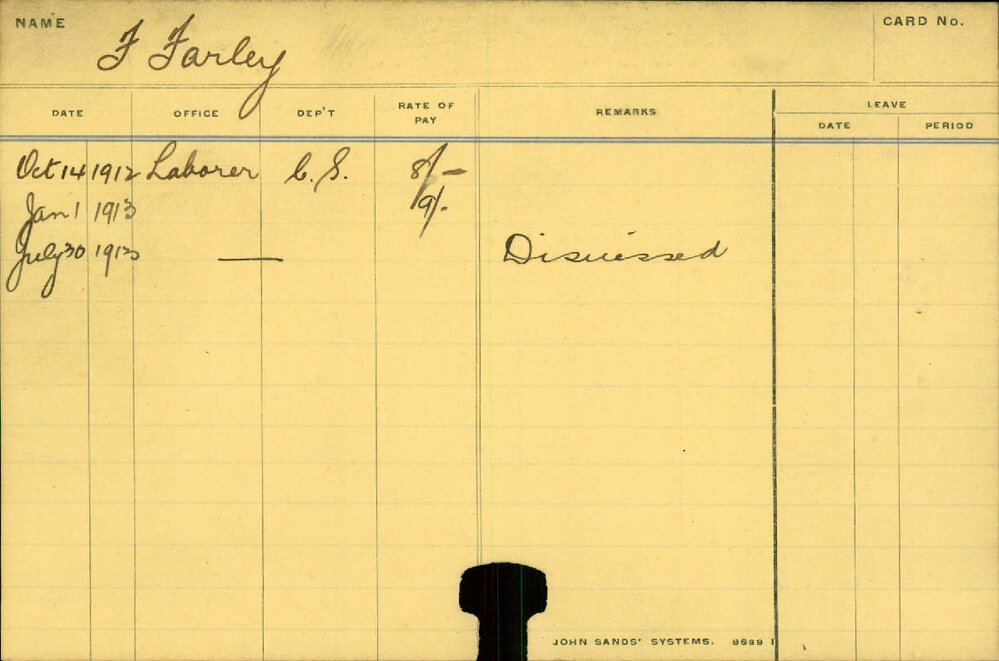 NAME F Farley CARD No.
DATE OFFICE DEP'T RATE OF PAY REMARKS LEAVE
DATE PERIOD
Oct 14 1912 Laborer C.S. 8/-
Jan 1 1913 9/-
July 30 1913 — Dismissed
JOHN SANDS' SYSTEMS. 8689 1